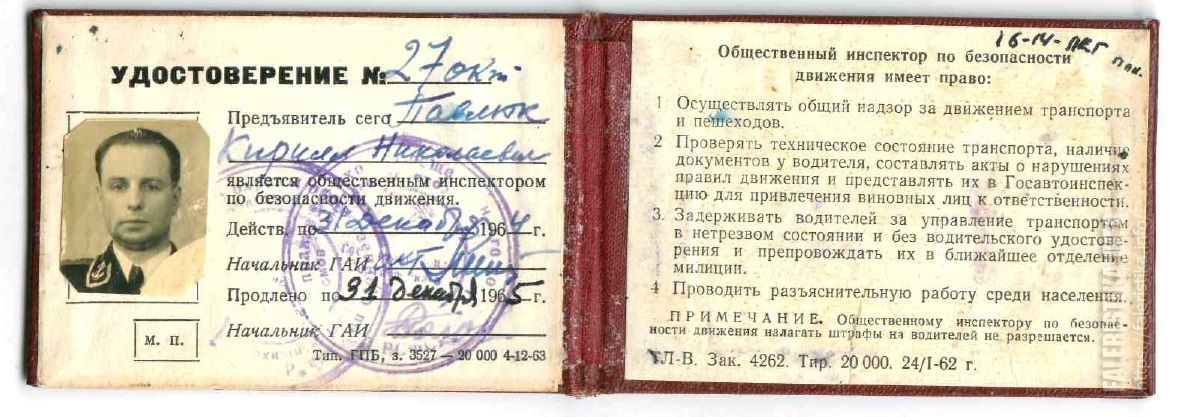 УДОСТОВЕРЕНИЕ № 27 окт
Предъявитель сего Павлюк
Кирилл Николаевич
является общественным инспектором
по безопасности движения.
Действ. по 31 Декабря 1964 г.
Начальник ГАИ
Продлено по 31 декабря 1965 г.
Начальник ГАИ
М. П.
Тип. ГПБ, з. 3527 — 20 000 4-12-63
16-14-ПКГ
Общественный инспектор по безопасности
движения имеет право:
1 Осуществлять общий надзор за движением транспорта
и пешеходов.
2 Проверять техническое состояние транспорта, наличие
документов у водителя, составлять акты о нарушениях
правил движения и представлять их в Госавтоинспек-
цию для привлечения виновных лиц к ответственности.
3. Задерживать водителей за управление транспортом
в нетрезвом состоянии и без водительского удостове-
рения и препровождать их в ближайшее отделение
милиции.
4 Проводить разъяснительную работу среди населения.
ПРИМЕЧАНИЕ. Общественному инспектору по безопас-
ности движения налагать штрафы на водителей не разрешается.
ГЛ-В. Зак. 4262. Тир. 20 000. 24/I-62 г.